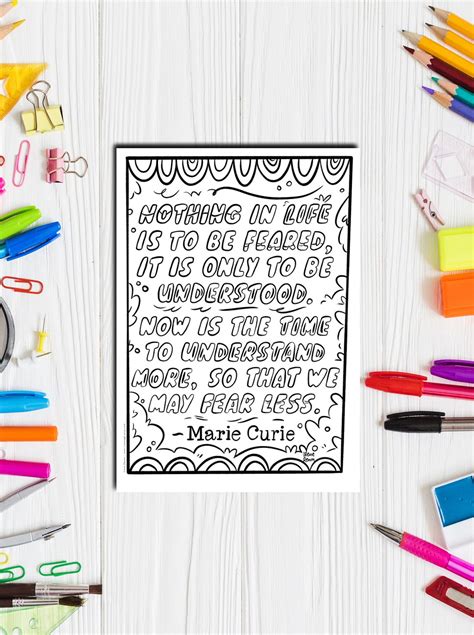 NOTHING IN LIFE
IS TO BE FEARED,
IT IS ONLY TO BE
UNDERSTOOD.
NOW IS THE TIME
TO UNDERSTAND
MORE, SO THAT WE
MAY FEAR LESS.
- Marie Curie